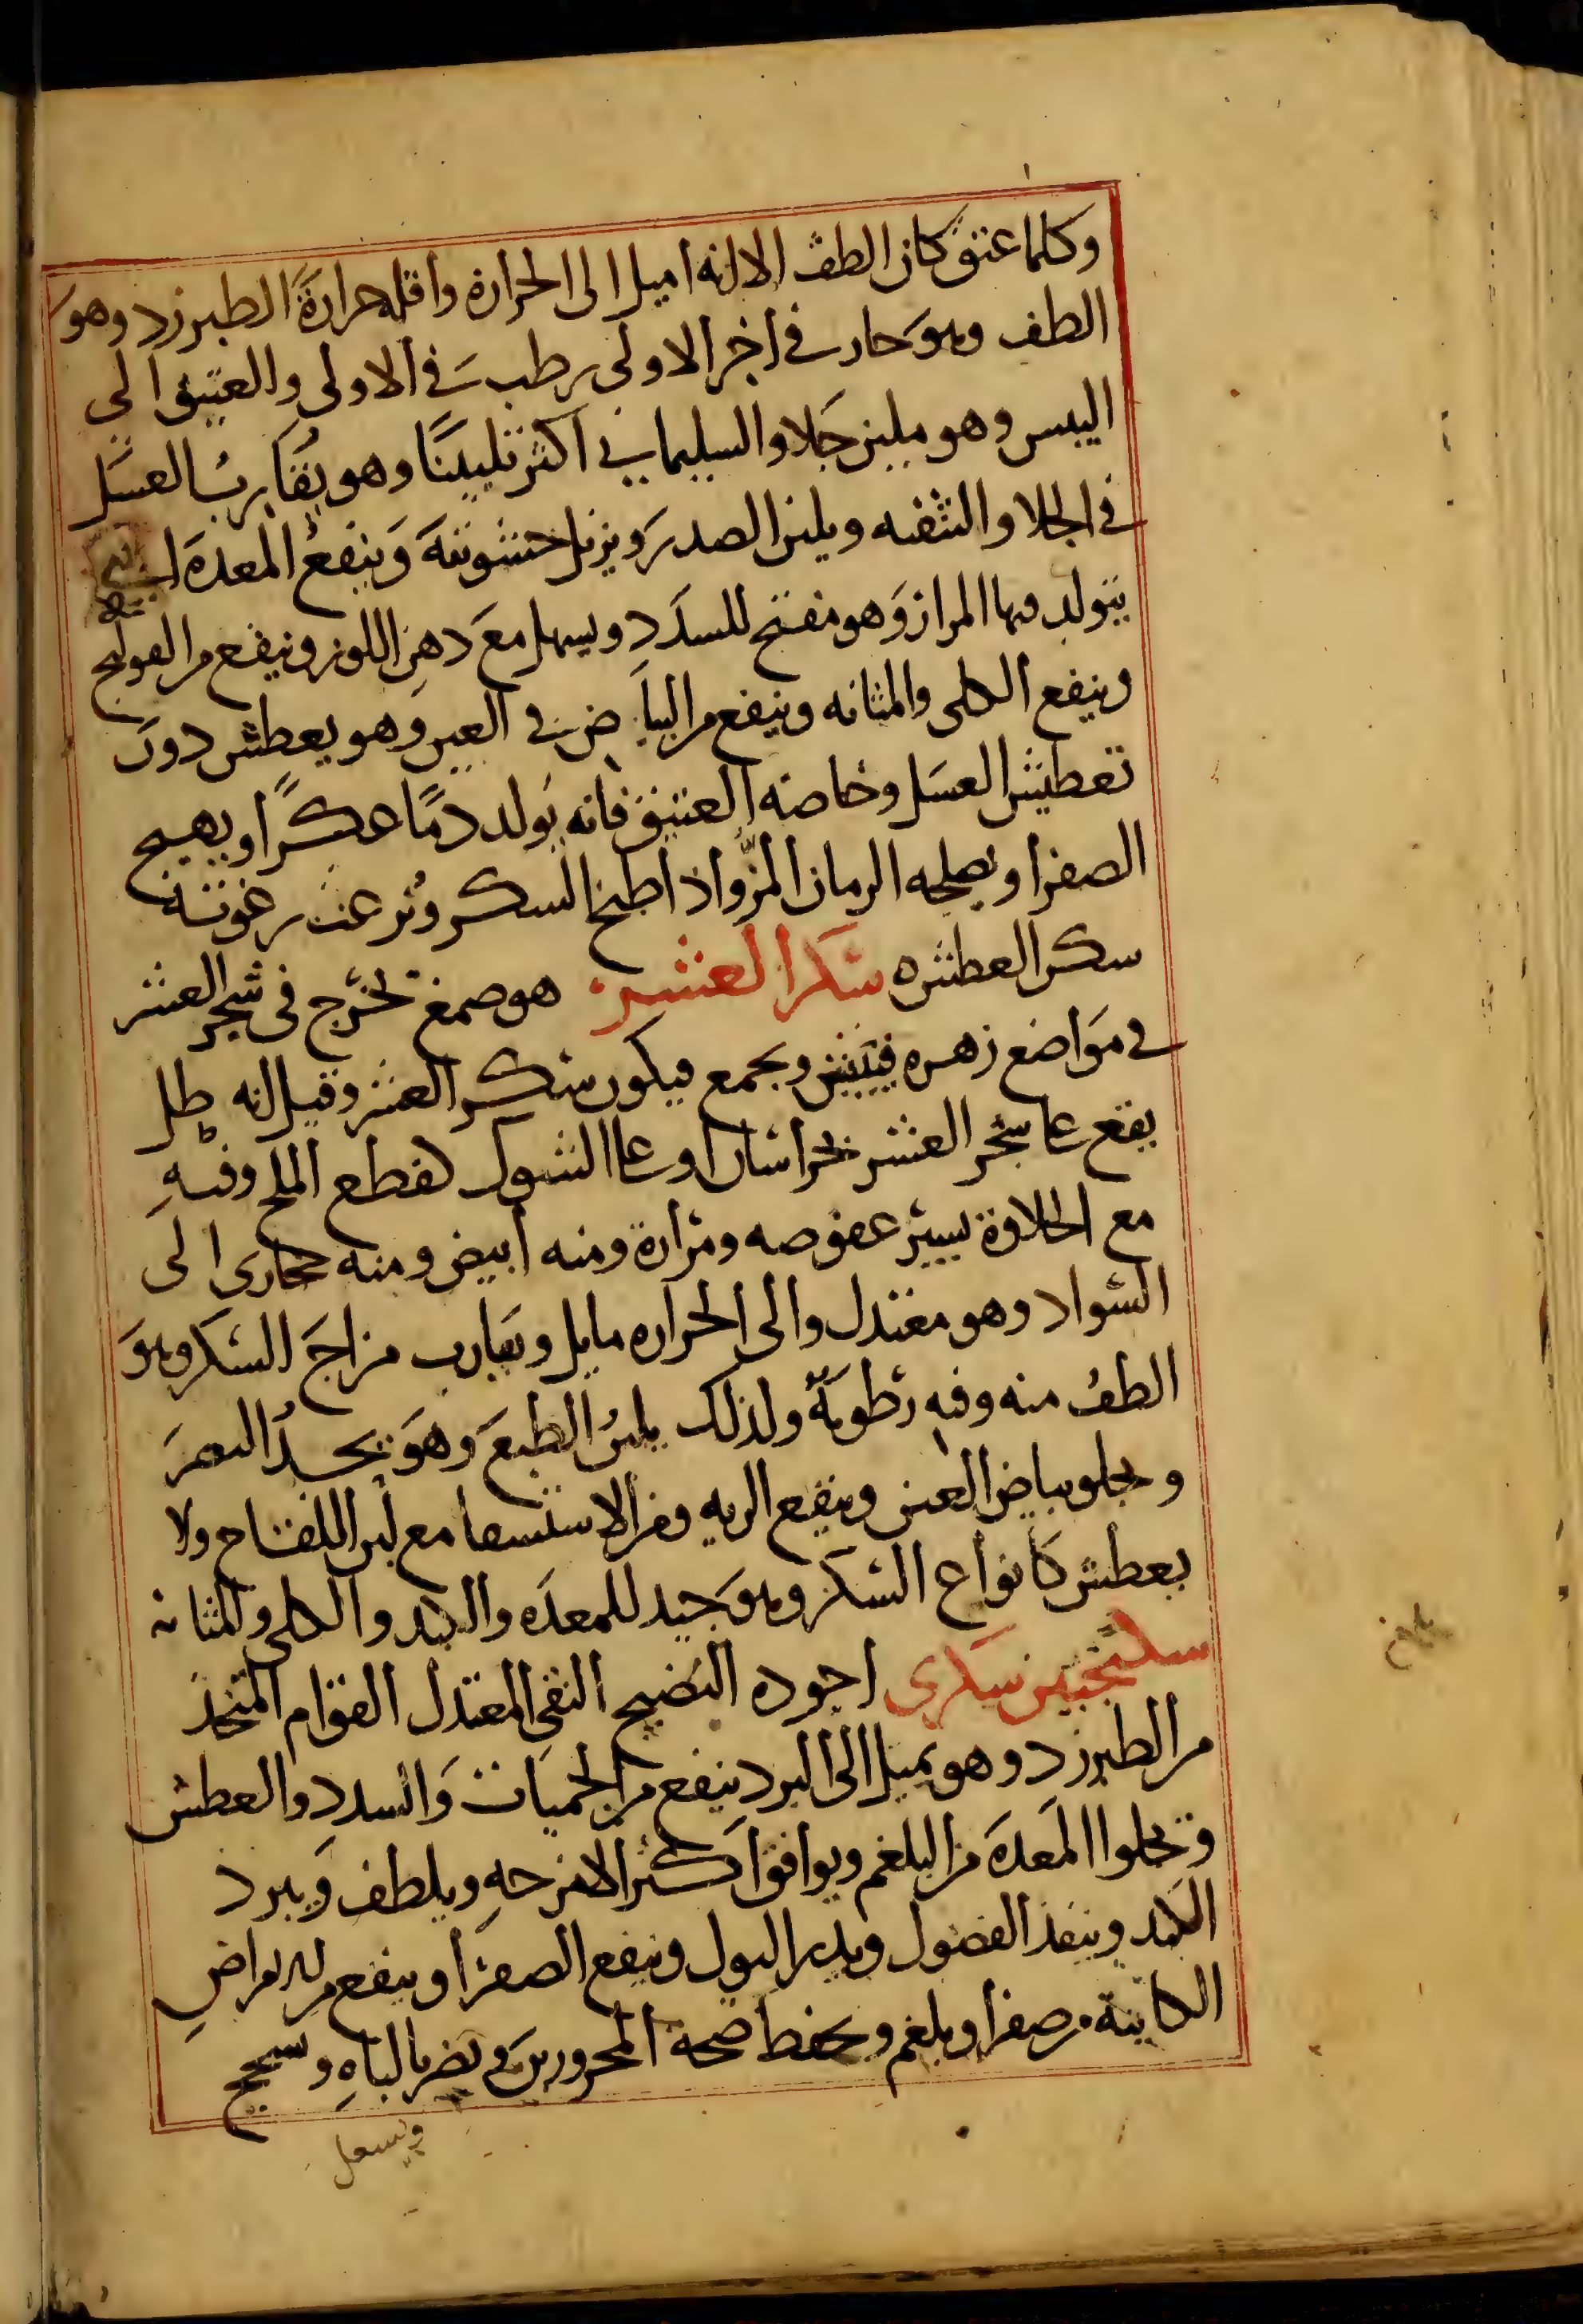 وكلما عتق كان الطف الا انه اميل الى الحرارة واقله حرارةً الطبرزد وهوَ
الطف وهوَ حار في اخر الاولى رطب في الاولى والعتيق الى
اليبس وهو ملين جَلا والسليماني اكثر تلييناً وهو يُقارب العسَل
في الجلا والتنقيه ويلين الصدر ويزيل خشونتهَ وَينفعُ المعدة التي
يتولد فيها المرار وَهو مفتح للسدَدِ ويسهل معَ دهنِ اللوز وينفع من القولنج
وينفع الكلى والمثانه وينفع من البياض في العين وهو يعطش دون
تعطيش العسَل وخاصه العتيق فانه يُولد دمًا عكرًا ويهيج
الصفرا ويصلحه الرمان المزّ واذا طبخ السكر ونُزعت رغوته
سكن العطش ه سُكر العُشر هو صمغ تخرج في شجر العشر
في مَواضع زهره فييبس ويجمع فيكون سُكر العشر وقيل انه طل
يقع على شجر العشر بخراسان او على الشوك كقطع الملح وفيهِ
مع الحلاوة يسير عفوصه ومرارة ومنه أبيض ومنه حجازى الى
السواد وهو معتدل والى الحراره مايل ويقارب مزاجَ السكر وهوَ
الطفُ منه وفيه رُطوبَةٌ ولذلك يلينُ الطبعَ وهوَ يحدُّ البصرَ
ويجلو بياض العين وينفع الريه ومن الاستسقا مع لبن اللقاح ولا
يعطش كأنواع السُكر وهوَ جَيد للمعدَه والكبد والكلى والمثانه
سكنجبين سكرى اجوده النضيج النقى المعتدل القوام المتخذ
من الطبرزد وهو يميل الى البرد ينفع من الحميات وَالسدد والعطش
ويجلوا المعَدةَ من البلغم ويوافق أكثر الامزجهِ ويلطف وَيبرد
الكبد وينفذ الفضول ويدر البول وينفع الصفرا وينفع من الامراضِ
الكاينة من صفرا وبلغم ويحفظ صحة المحرورين ويضر بالباهِ وسحج
ويسعل